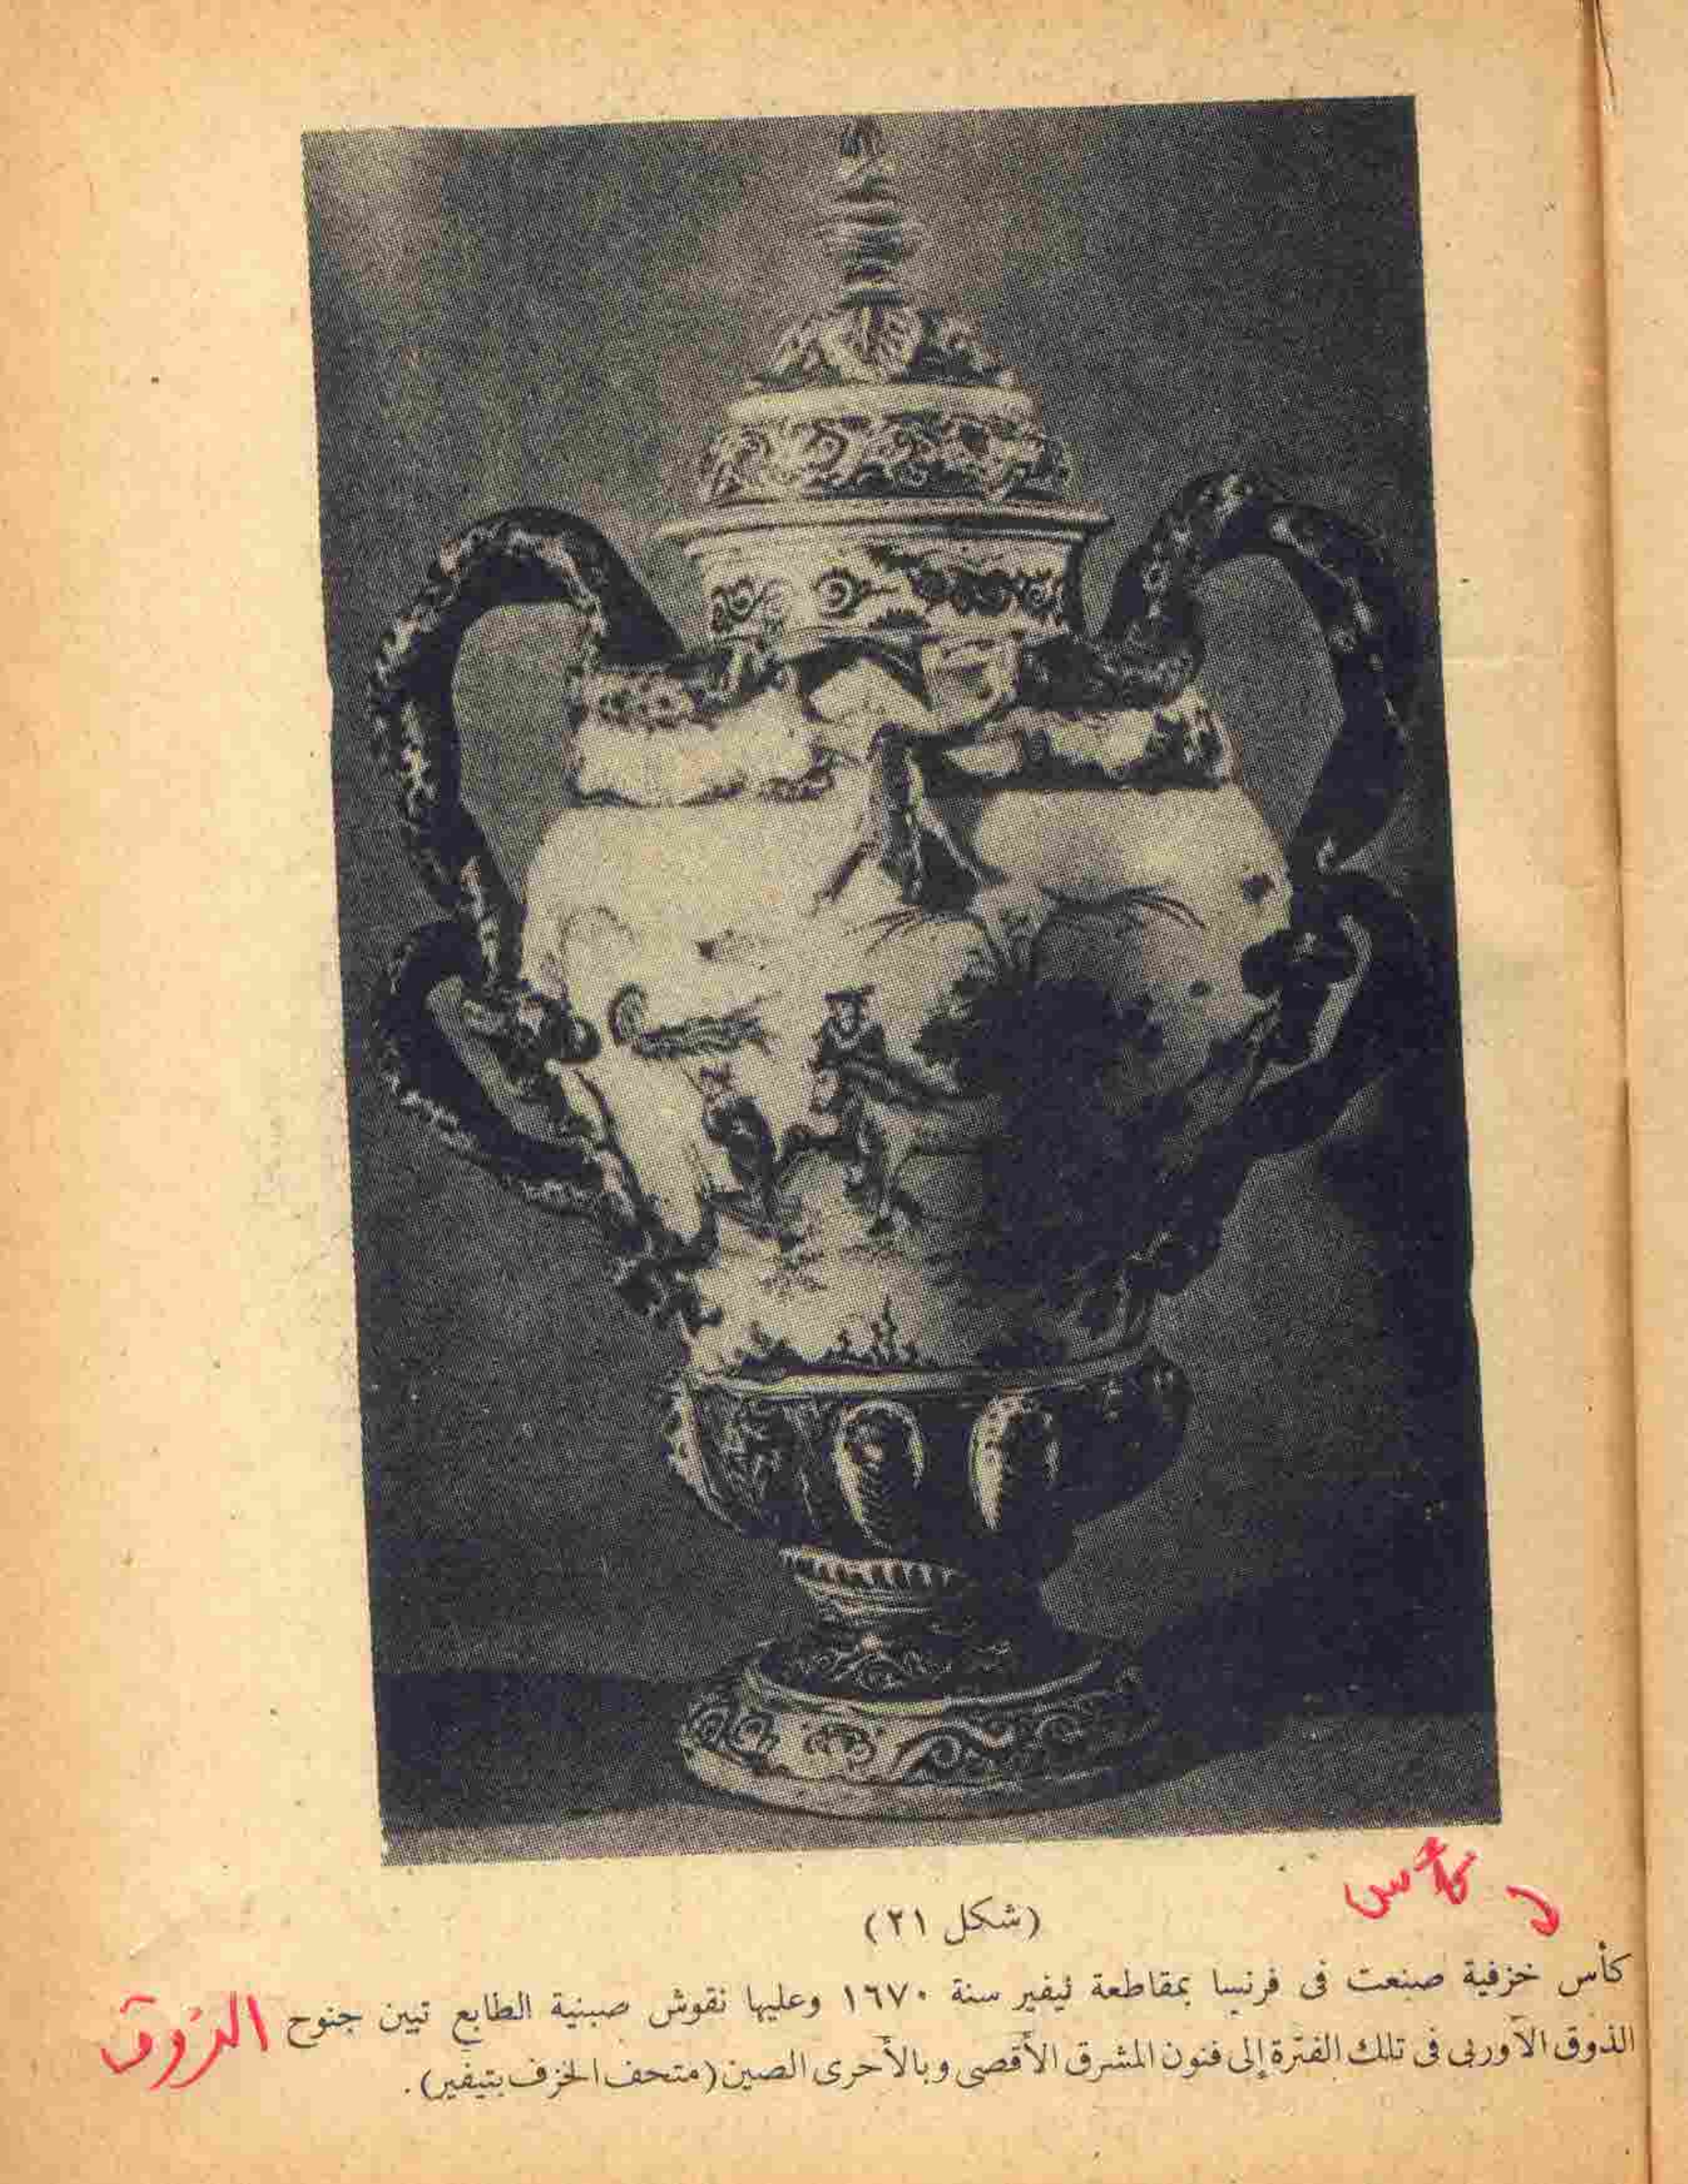 كأس
(شكل ٢١)
كأس خزفية صنعت فى فرنسا بمقاطعة نيفير سنة ١٦٧٠ وعليها نقوش صينية الطابع تبين جنوح
الذوق
الذوق الأوربى فى تلك الفترة إلى فنون المشرق الأقصى وبالأحرى الصين (متحف الخزف بتيفير).